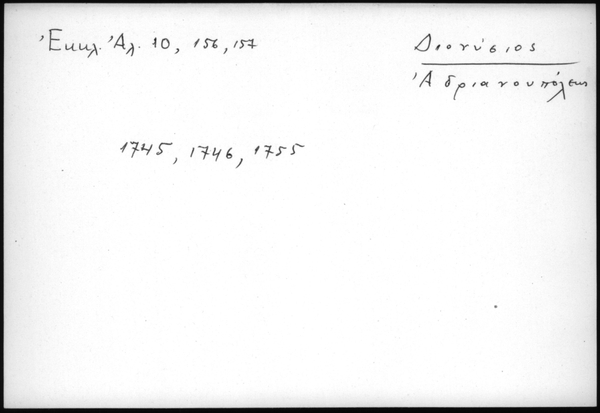 Ἐκκλ. Ἀλ. 10, 156, 157
Διονύσιος
Ἀδριανουπόλεως
1745, 1746, 1755